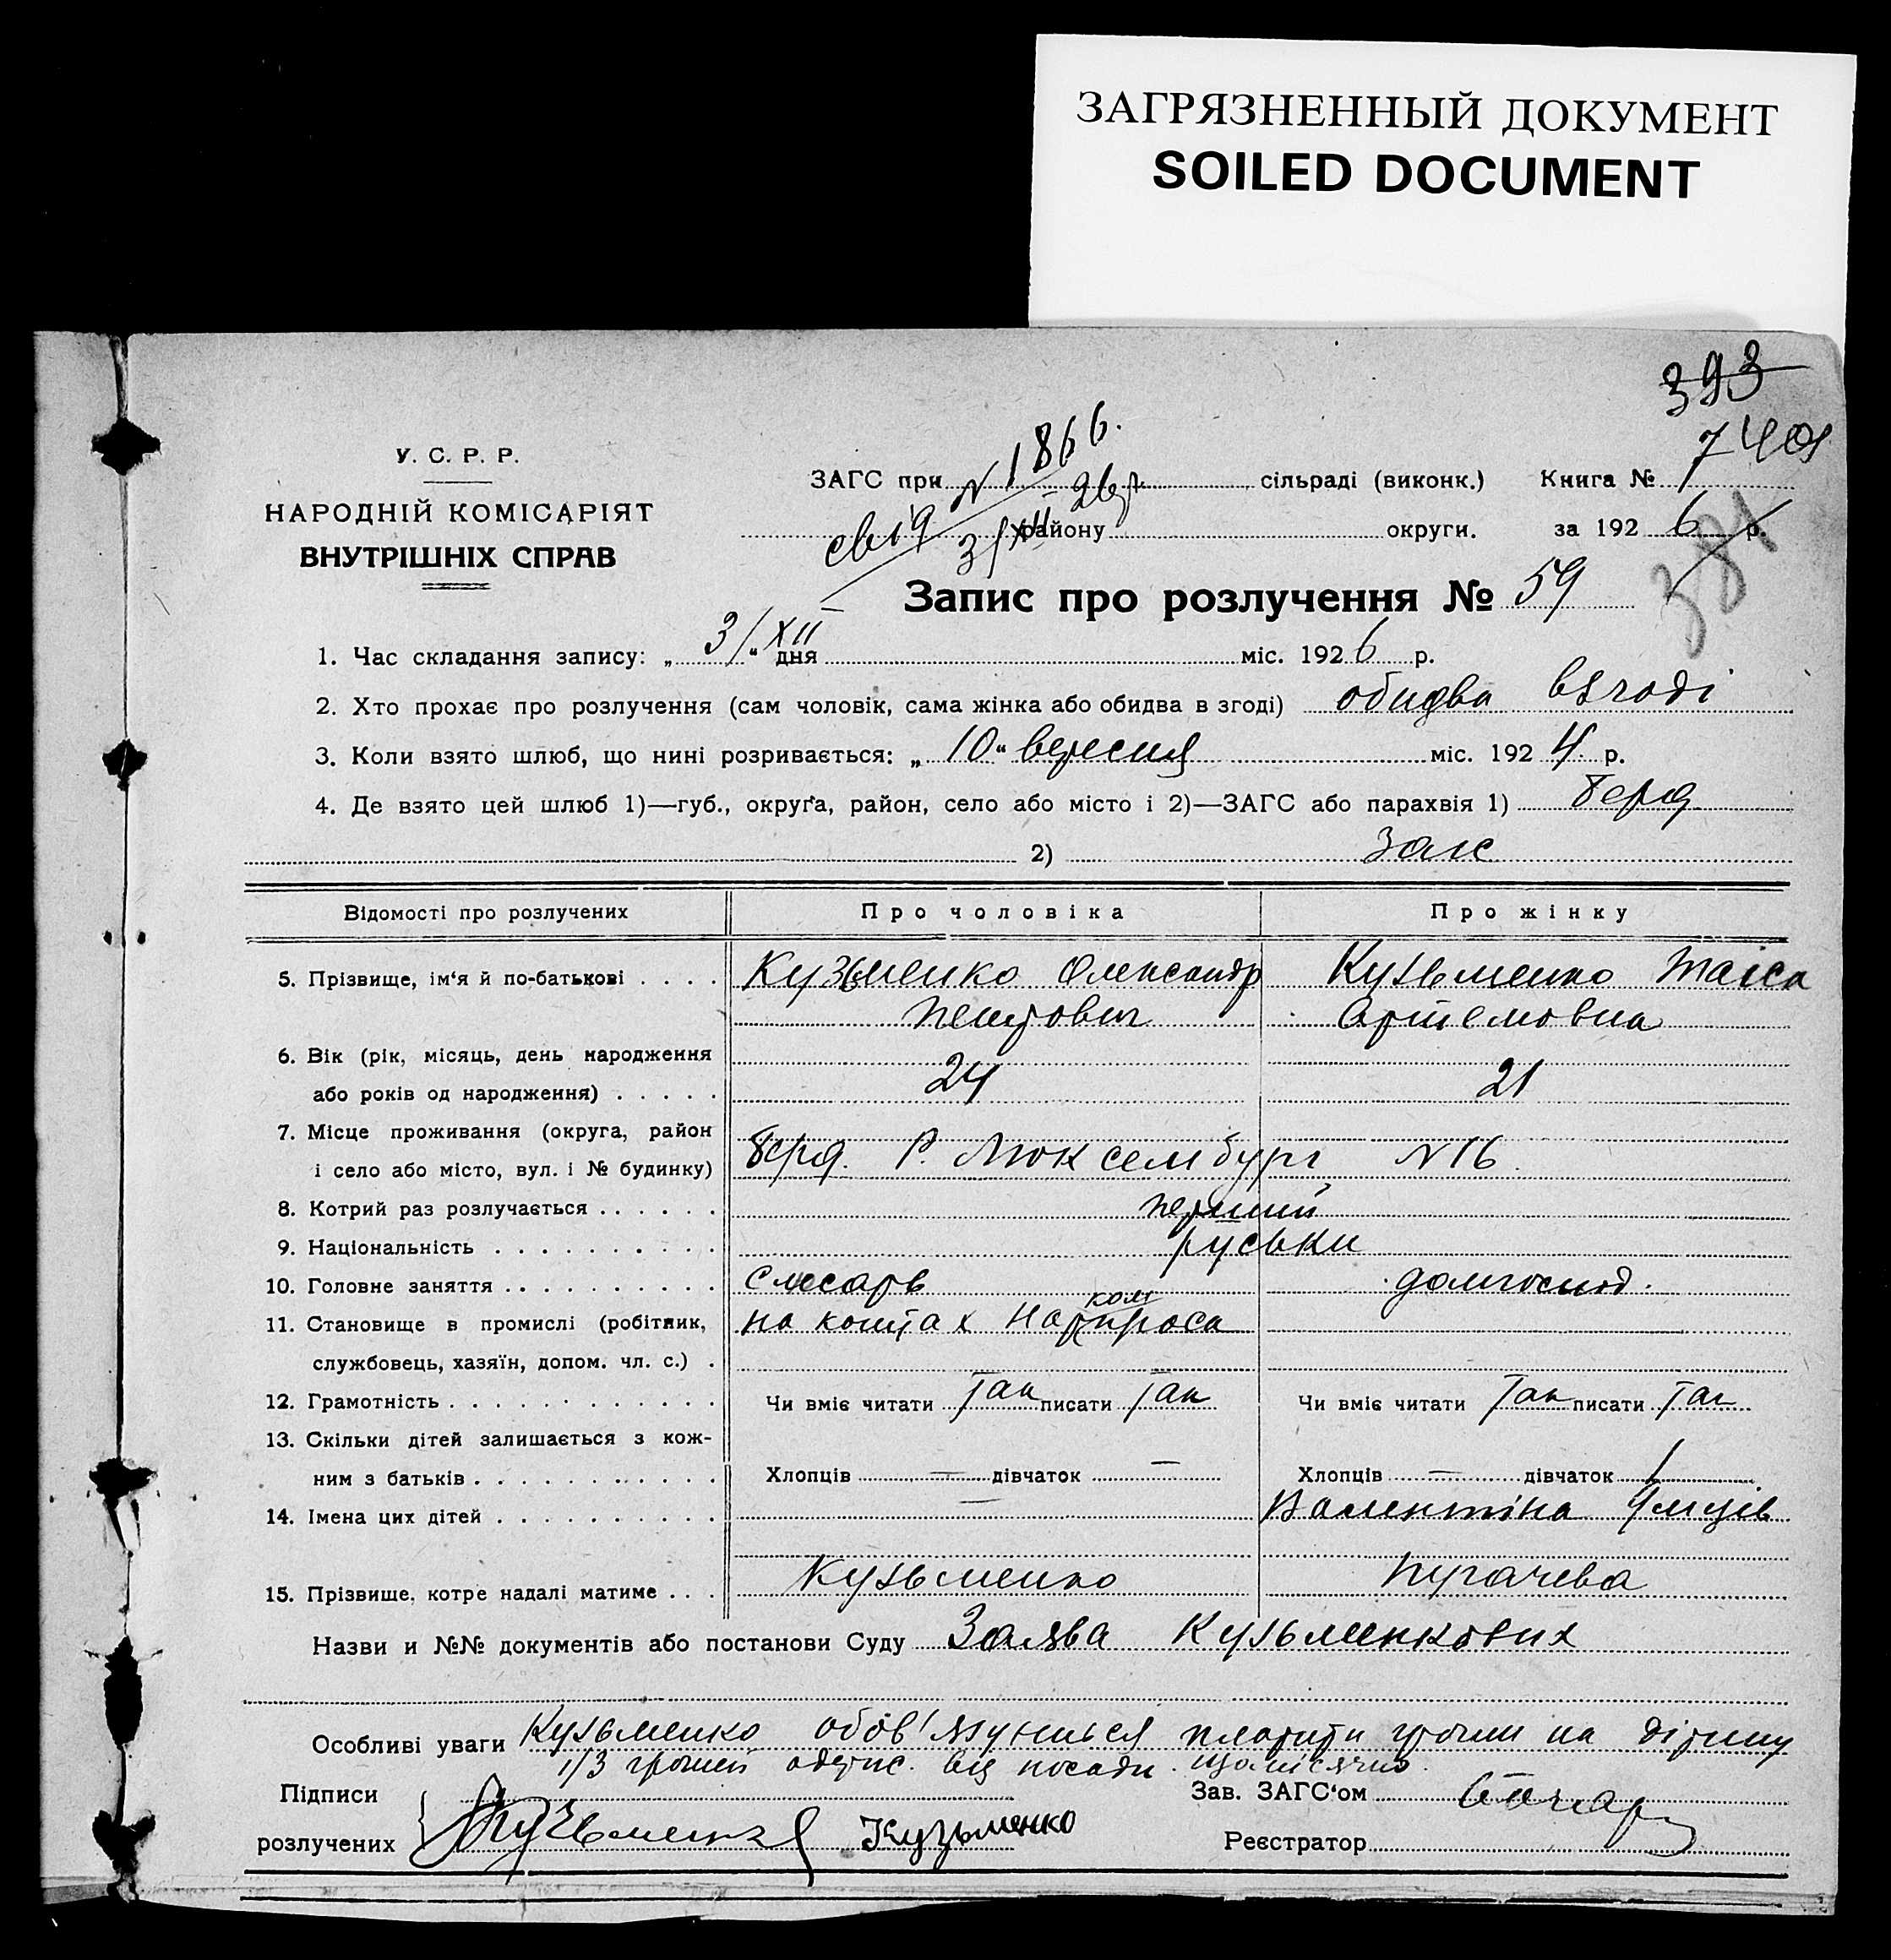 ЗАГРЯЗНЕННЫЙ ДОКУМЕНТ
SOILED DOCUMENT
393
740
У. С. Р. Р.
НАРОДНІЙ КОМІСАРІЯТ
ВНУТРІШНІХ СПРАВ
N 1866.
ЗАГС при сільраді (виконк.) Книга № 7
району округи. за 192 6 р.
381
Запис про розлучення № 59
1. Час складання запису: „ 3/XII “ дня міс. 192 6 р.
2. Хто прохає про розлучення (сам чоловік, сама жінка або обидва в згоді) обидва взгоді
3. Коли взято шлюб, що нині розривається: „ 10 “ вересня міс. 192 4 р.
4. Де взято цей шлюб 1)—губ., округа, район, село або місто і 2)—ЗАГС або парахвія 1) Берд.
2) Загс
Відомості про розлучених Про чоловіка Про жінку
5. Прізвище, ім‘я й по-батькові Кузьменко Олександр Кузьменко Таіса
Петрович Артемовна
6. Вік (рік, місяць, день народження
або років од народження) 24 21
7. Місце проживання (округа, район
і село або місто, вул. і № будинку) Берд. Р. Люксембург N 16
8. Котрий раз розлучається перший
9. Національність руськи
10. Головне заняття слюсарь домгоспод.
11. Становище в промислі (робітник, на коштах Нарком проса
службовець, хазяїн, допом. чл. с.)
12. Грамотність Чи вміє читати Так писати Так Чи вміє читати Так писати Так
13. Скільки дітей залишається з кож-
ним з батьків Хлопців — дівчаток — Хлопців — дівчаток 1
14. Імена цих дітей — Валентіна 4 мців
15. Прізвище, котре надалі матиме Кузьменко Пугачева
Назви и №№ документів або постанови Суду Заява Кузьменкових
Особливі уваги Кузьменко обов'язуеться платити гроши на дітину
1/3 грошей від посади щомісячно.
Підписи Зав. ЗАГС‘ом
розлучених Кузьменко Кузьменко Реєстратор